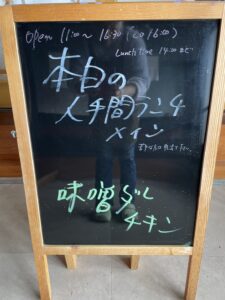 open 11:00～16:30 (LO 16:00)
Lunch time 14:00まで
本日の
人手間ランチ
メイン
味噌ダレ
チキン